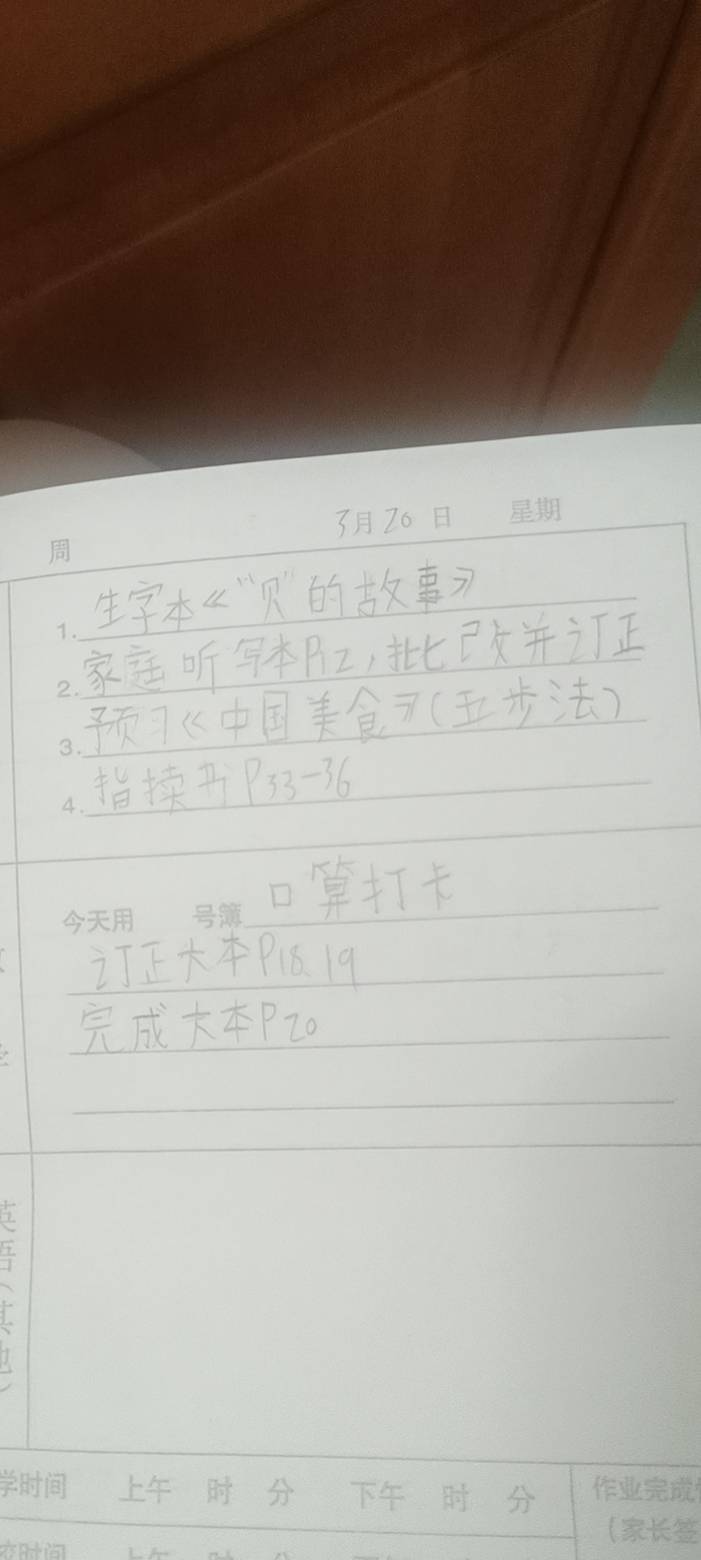 周 3月20日 星期
1. 生字本《“贝”的故事》
2. 家庭听写本P12,批改并订正
3. 预习《中国美食》(五步法)
4. 指读书P33-36
今天用 号簿 口算打卡
订正大本P18、19
完成大本P20
英语(其他)
学时间 上午 时 分 下午 时 分 作业完成
校时间 上午 时 分 (家长签